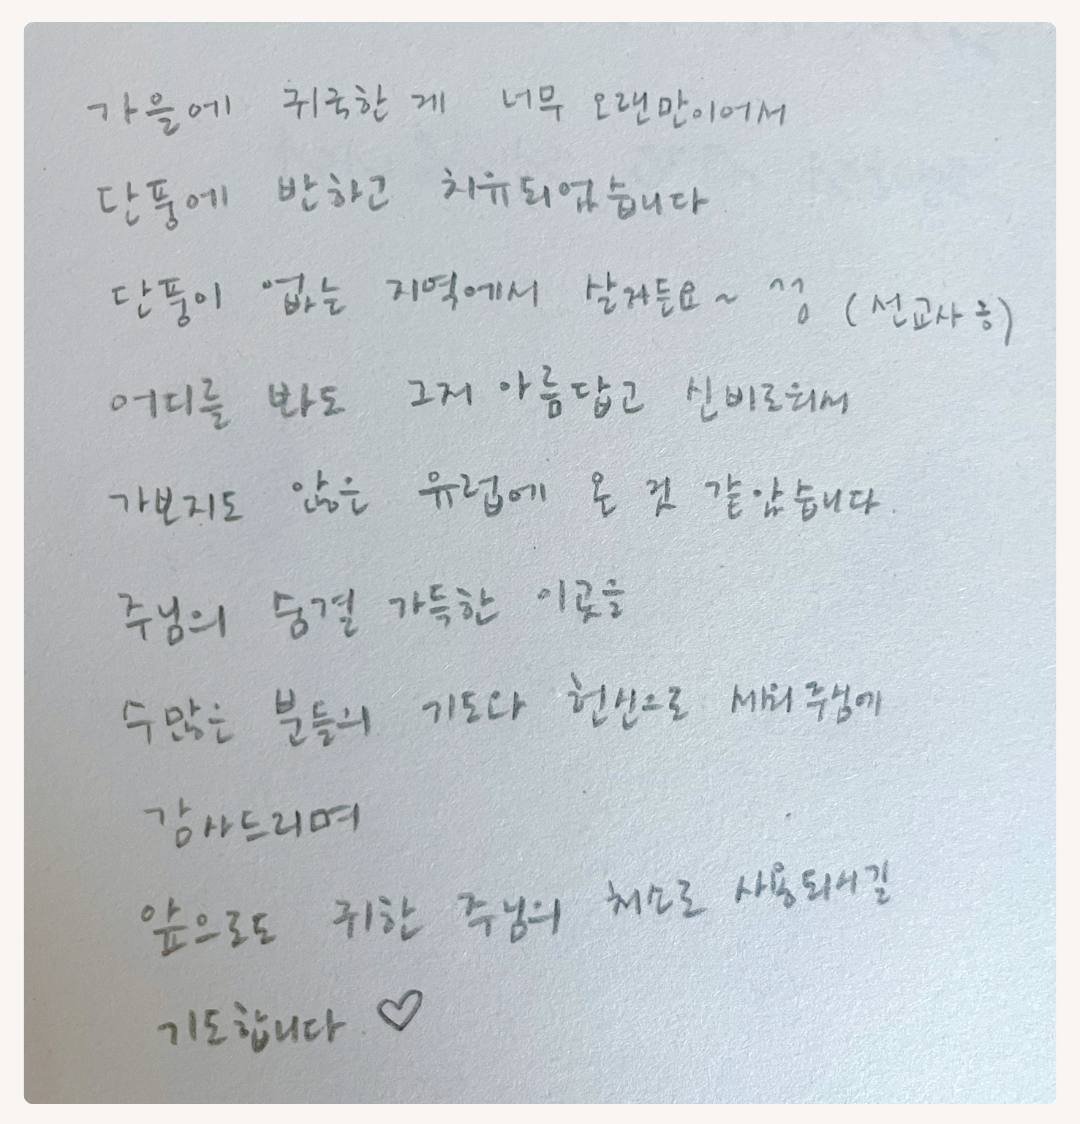 가을에 귀국한 게 너무 오랜만이어서
단풍에 반하고 치유되었습니다
단풍이 없는 지역에서 살거든요~ ^^; (선교사 ㅎ)
어디를 봐도 그저 아름답고 신비로워서
가보지도 않은 유럽에 온 것 같았습니다.
주님의 숨결 가득한 이곳을
수많은 분들의 기도와 헌신으로 세워 주심에
감사드리며
앞으로도 귀한 주님의 처소로 사용되시길
기도합니다. ♡